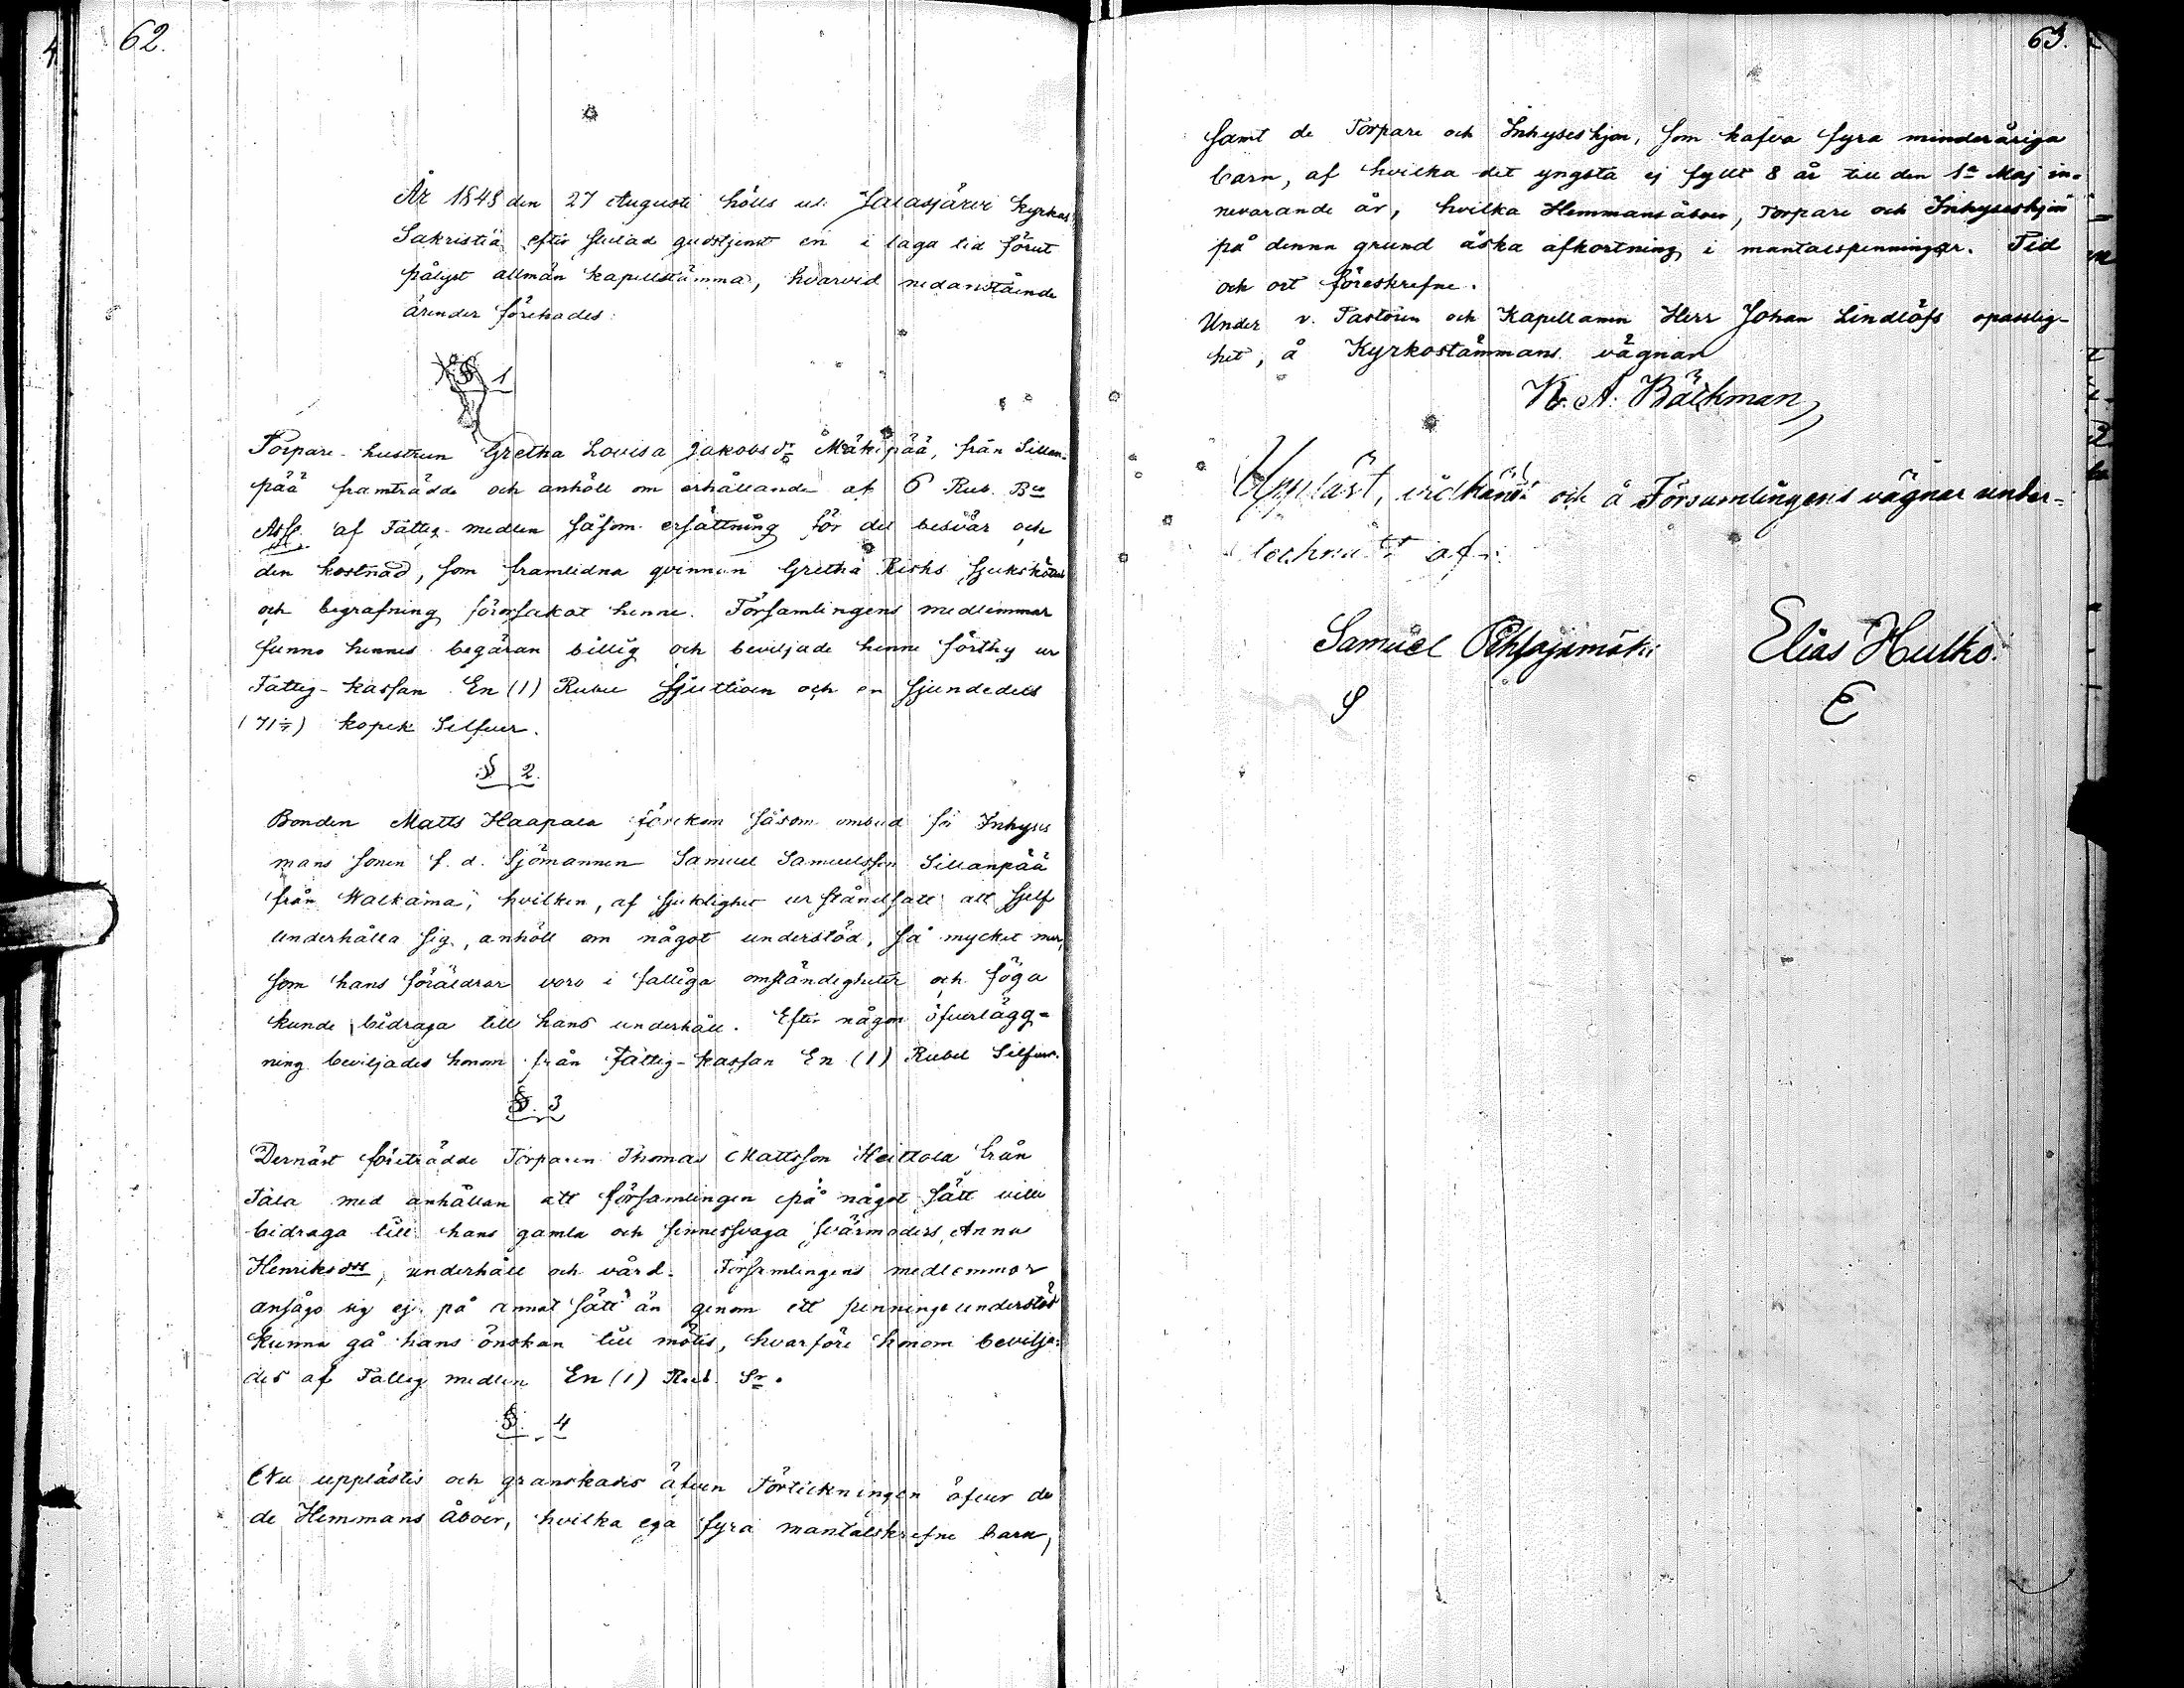 62.
År 1848 den 27 Augusti hölls uti Jalasjärvi Kyrkas
Sakristia efter slutad gudstjenst en i laga tid förut
pålyst allmän kapellstämma, hvarvid nedanstående
ärender förehades:
§ 1
Torpare-hustrun Gretha Lovisa Jakobsdr Mäkipää, från Sillan-
pää framträdde och anhöll om erhållande af 6 Rub. Bco
Ass. af Fattig-medlen såsom ersättning för det besvär och
den kostnad, som framlidna qvinnan Gretha Risks sjukskötsel
och begrafning förorsakat henne. Församlingens medlemmar
funno hennes begäran billig och beviljade henne förthy ur
Fattig-kassan En (1) Rubel sjuttioen och en sjundedels
(71 1/7) kopek Silfver.
§ 2.
Bonden Matts Haapala förekom såsom ombud för Inhyses
mans sonen f. d. Sjömannen Samuel Samuelsson Sillanpää
från Walkama, hvilken, af sjuklighet urståndsatt att sjelf
underhålla sig, anhöll om något understöd, så mycket mer,
som hans föräldrar voro i fattiga omständigheter och föga
kunde bidraga till hans underhåll. Efter någon öfverlägg-
ning beviljades honom från Fattig-kassan En (1) Rubel Silfver.
§. 3
Dernäst företrädde Torparen Thomas Mattsson Keittola från
Tala med anhållan att församlingen på något sätt ville
bidraga till hans gamla och sinnessvaga svärmoders, Anna
Henriksdrs, underhåll och vård. Församlingens medlemmar
ansågo sig ej på annat sätt än genom ett penninge understöd
kunna gå hans önskan till mötes, hvarföre honom bevilja-
des af Fattig medlen En (1) Rub. Sr.
§. 4
Nu upplästes och granskades äfven Förteckningen öfver de
de Hemmans åboer, hvilka ega fyra mantalskrefne barn,
63.
samt de Torpare och Inhyseshjon, som hafva fyra minderåriga
barn, af hvilka det yngsta ej fyllt 8 år till den 1a Maj in-
nevarande år, hvilka Hemmansåboer, Torpare och Inhyseshjon
på denna grund äska afkortning i mantalspenningar. Tid
och ort föreskrefne.
Under v. Pastoren och Kapellanen Herr Johan Lindlöfs opasslig-
het, å Kyrkostämmans vägnar
K. A. Bäckman
Uppläst, vidkändt och å Församlingens vägnar under-
tecknadt af:
Samuel Pihlajamäki Elias Hutko.
S E